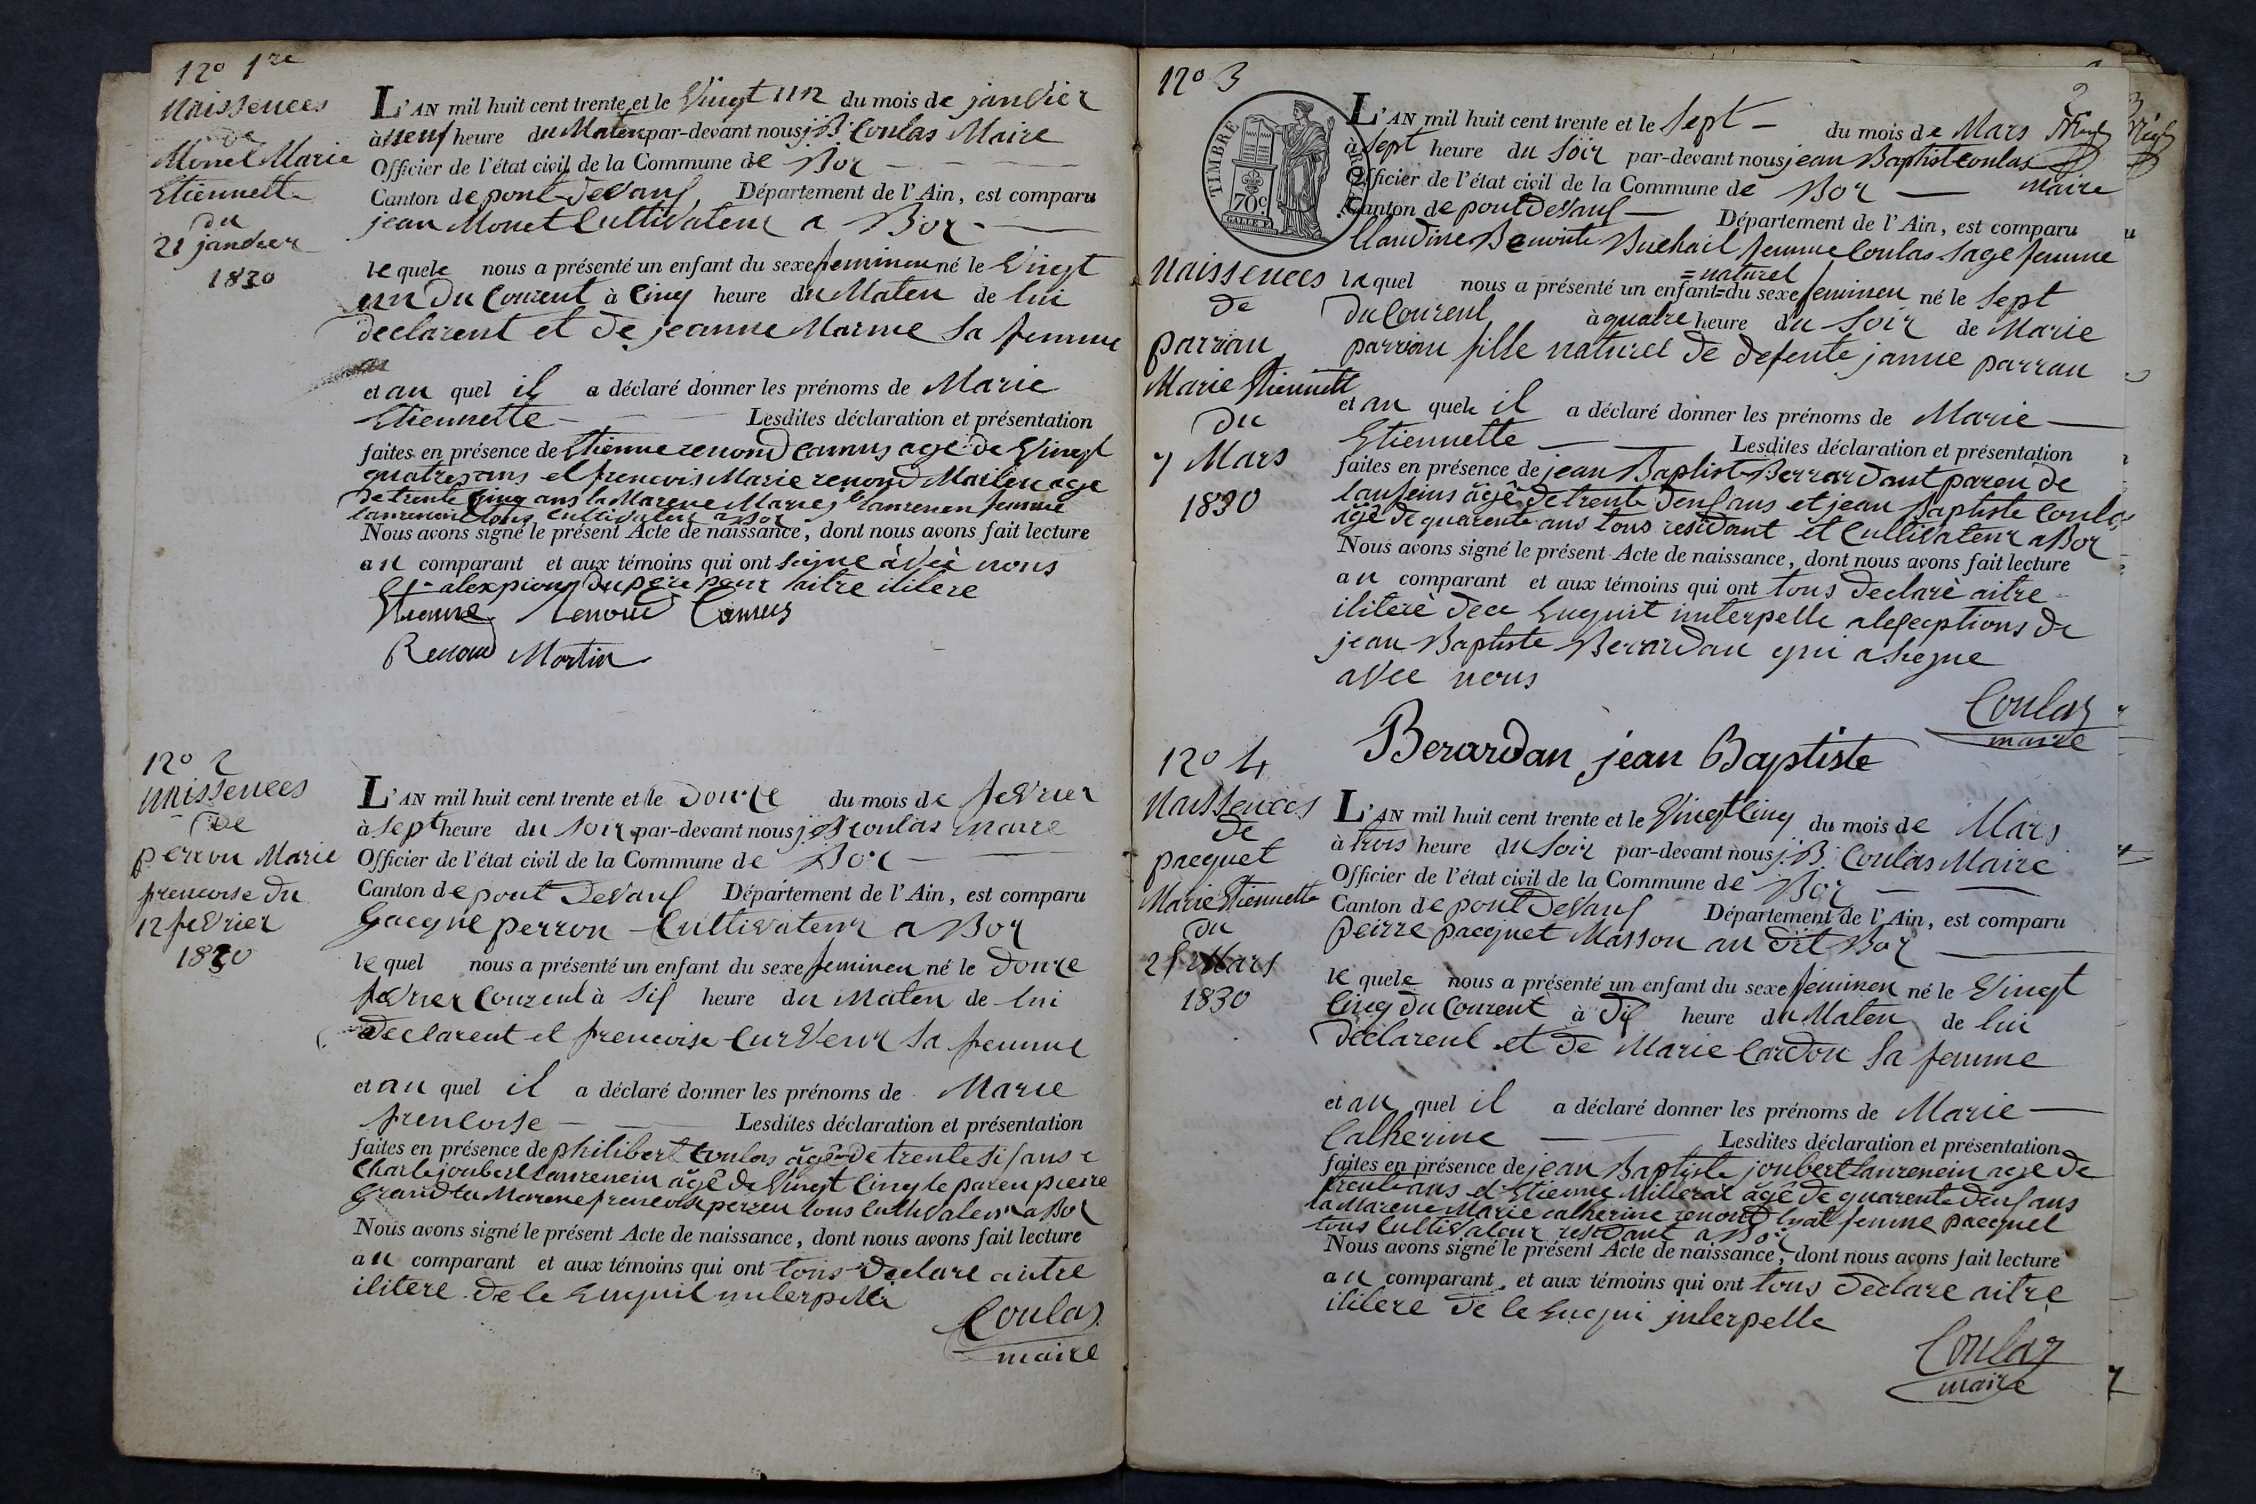 No 1re
Naissences
de
Monet Marie
Etiennette
du
21 janvier
1830
L'AN mil huit cent trente et le Vingt un du mois de janvier
à neuf heure du Maten par-devant nous j B Coulas Maire
Officier de l'état civil de la Commune de Boz
Canton de pont deVauf Département de l'Ain, est comparu
jean Monet Cultivateur a Boz
le quele nous a présenté un enfant du sexe feminen né le Vingt
un du Courent à Cinq heure du Maten de lui
declarent et de jeanne Marme sa femme
et au quel il a déclaré donner les prénoms de Marie
Etiennette Lesdites déclaration et présentation
faites en présence de Etienne renoud Camus age de Vingt
quatres ans et francois Marie renoud Marten age
de trente Cinq ans la Marene Marie j laurencin femme
laurencin tous Cultivateur a Boz
Nous avons signé le présent Acte de naissance, dont nous avons fait lecture
au comparant et aux témoins qui ont signe àvec nous
et alexpions du pere pour aitre ilitere
Etienne Renoud Camus
Renoud Martin
No 2
Naissences
de
perron Marie
francoise du
12 feVrier
1830
L'AN mil huit cent trente et le douze du mois de feVrier
à sept heure du soir par-devant nous j B Coulas maire
Officier de l'état civil de la Commune de Boz
Canton de pont DeVauf Département de l'Ain, est comparu
Gacque perron Cultivateur a Boz
le quel nous a présenté un enfant du sexe feminen né le douze
feVrier Courent à sif heure du Maten de lui
declarent et francoise CurVeur sa femme
et au quel il a déclaré donner les prénoms de Marie
francoise Lesdites déclaration et présentation
faites en présence de philibert Coulas âgê de trente sif ans e
Charle joubert laurencin âgê de Vingt Cinq le paren pierre
Grand la Marene francoise perron tous Cultivateur a Boz
Nous avons signé le présent Acte de naissance, dont nous avons fait lecture
au comparant et aux témoins qui ont tous declare aitre
ilitere de le Enquit interpelle
Coulas
maire
No 3
2
TIMBRE ROYAL
70c
GALLE
Naissences
de
parrau
Marie Etiennette
du
7 Mars
1830
L'AN mil huit cent trente et le Sept du mois de Mars
à Sept heure du Soir par-devant nous jean Baptist Coulas
Officier de l'état civil de la Commune de Boz Maire
Canton de pont DeVauf Département de l'Ain, est comparu
Claudine Benoite Buchail femme Coulas sage femme
= naturel
la quel nous a présenté un enfant = du sexe feminen né le sept
du Courent à quatre heure du Soir de Marie
parrau fille naturel de defente janne parrau
et au quele il a déclaré donner les prénoms de Marie
Etiennette Lesdites déclaration et présentation
faites en présence de jean Baptist Berrardant paren de
lanfens âgê de trente deuf ans et jean Baptiste Coulas
âgê de quarente ans tous residant et Cultivateur a Boz
Nous avons signé le présent Acte de naissance, dont nous avons fait lecture
au comparant et aux témoins qui ont tous declarè aitre
ilitere dece Enquit interpelle alefceptions de
jean Baptiste Berardan qui a segne
aVec nous
Coulas
maire
Berardan jean Baptiste
No 4
Naissences
de
pacquet
Marie Etiennette
du
25 Mars
1830
L'AN mil huit cent trente et le Vingt Cinq du mois de Mars
à trois heure du Soir par-devant nous j. B. Coulas Maire
Officier de l'état civil de la Commune de Boz
Canton de pont DeVauf Département de l'Ain, est comparu
peirre pacquet Masson au dit Boz
le quele nous a présenté un enfant du sexe feminen né le Vingt
Cinq du Courent à dif heure du Maten de lui
declarent et de Marie Cardon sa femme
et au quel il a déclaré donner les prénoms de Marie
Catherine Lesdites déclaration et présentation
faites en présence de jean Baptiste joubert laurencin age de
trente ans et Etienne Millerat âgê de quarente deuf ans
la Marene Marie catherine renoud lyat femme pacquet
tous Cultivateur residant a Boz
Nous avons signé le présent Acte de naissance, dont nous avons fait lecture
au comparant et aux témoins qui ont tous declare aitre
ilitere de le Enqui interpelle
Coulas
maire